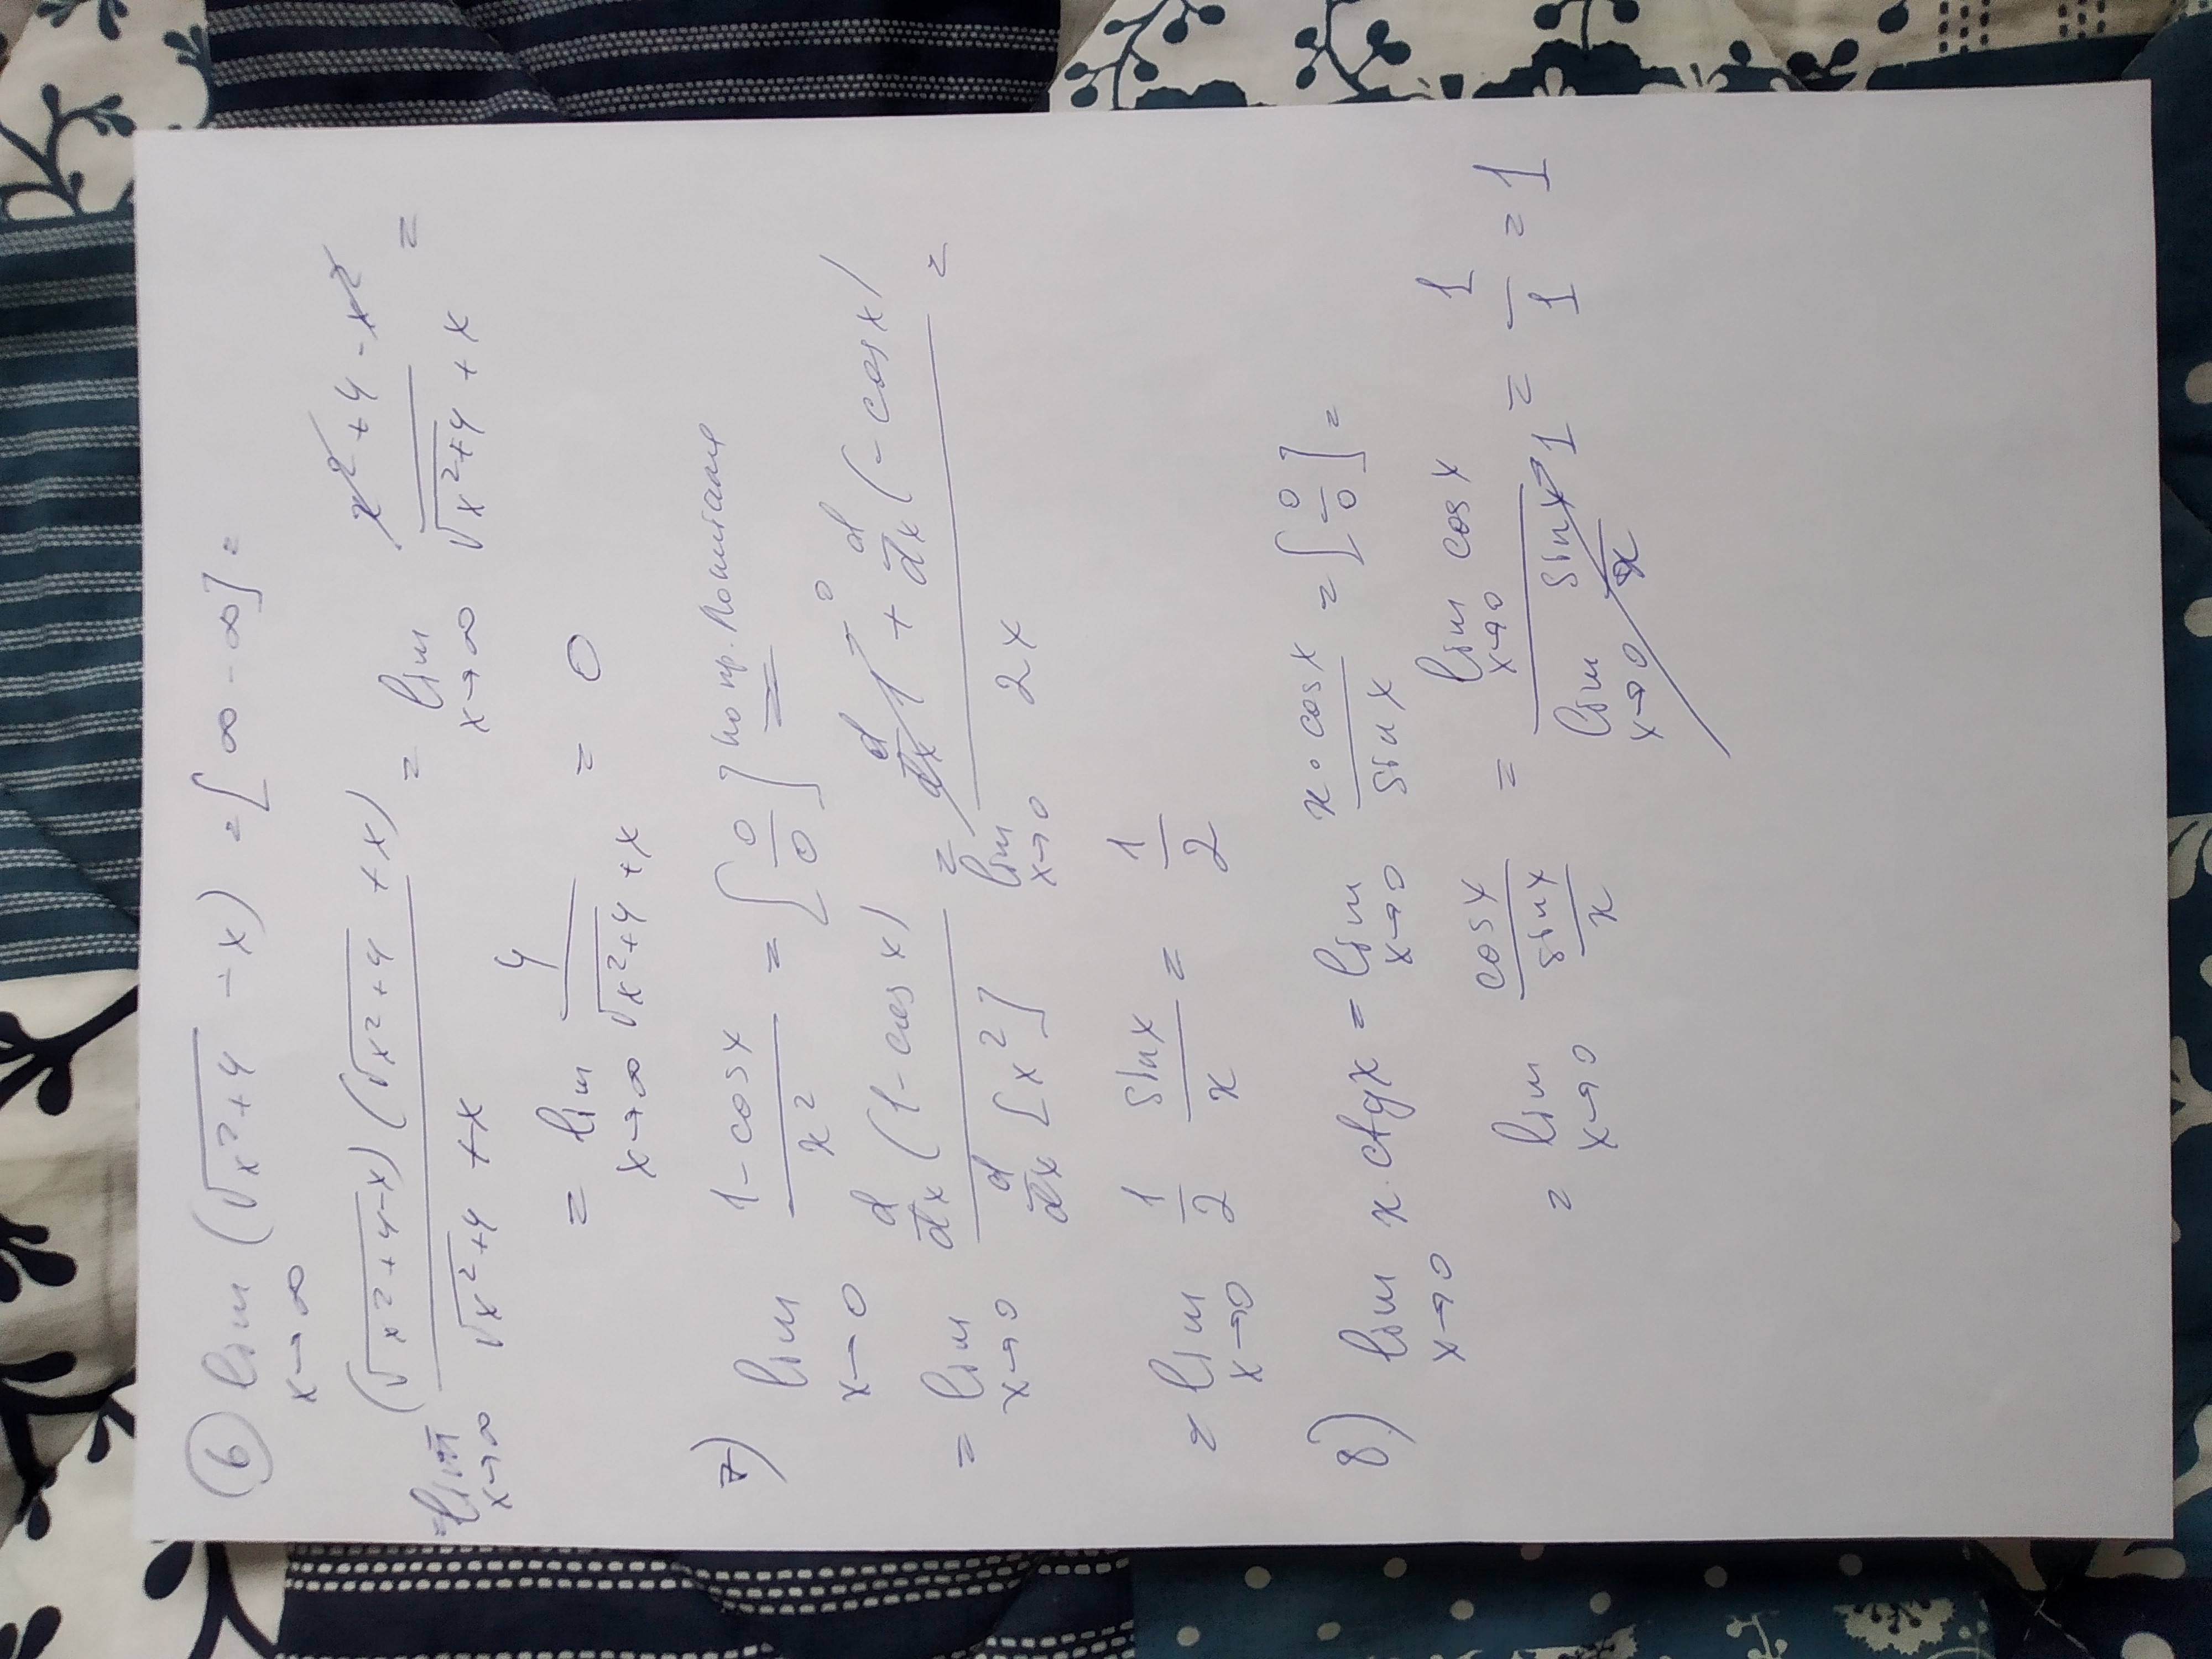 6 lim x→∞ (√(x²+4) - x) = [∞ - ∞] =
= lim x→∞ (√(x²+4-x)(√(x²+4) + x) / (√(x²+4) + x) = lim x→∞ (x² + 4 - x²) / (√(x²+4) + x) =
= lim x→∞ 4 / (√(x²+4) + x) = 0
7) lim x→0 (1 - cos x) / x² = [0/0] по пр. Лопиталя =
= lim x→0 (d/dx (1 - cos x)) / (d/dx [x²]) = lim x→0 (d/dx 1 → 0 + d/dx (- cos x)) / 2x =
= lim x→0 1/2 sin x / x = 1/2
8) lim x→0 x · ctg x = lim x→0 (x · cos x) / sin x = [0/0] =
= lim x→0 cos x / (sin x / x) = (lim x→0 cos x) / (lim x→0 sin x / x → 1) = 1/1 = 1